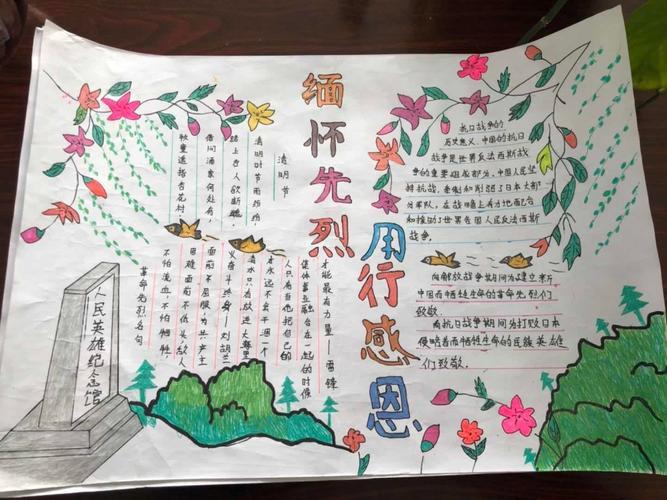 缅怀先烈
用行感恩
清明节
清明时节雨纷纷,
路上行人欲断魂。
借问酒家何处有,
牧童遥指杏花村。
革命先烈名句
不怕流血不怕牺牲
困难面前不低头敌人
面前不屈服为共产主
义奋斗终身——刘胡兰
水只有放进大海里
才永远不会干涸一个
人只有当他把自己的
集体事业融合在一起的时候
才能最有力量——雷锋
人民英雄纪念馆
抗日战争的
历史意义,中国的抗日
战争是世界反法西斯战
争的重要组成部分,中国人民坚
持抗战,牵制和削弱了日本大部
分军队,在战略上有力地配合
和援助了世界各国人民反法西斯
战争。
向解放战争期间为建立新
中国而牺牲生命的革命先烈们
致敬。
向抗日战争期间为打败日本
侵略者而牺牲生命的民族英雄
们致敬。